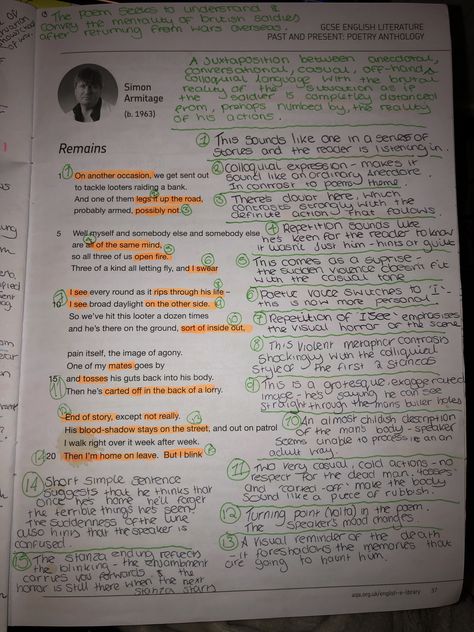 The poem seeks to understand &
convey the mentality of british soldiers
after returning from wars overseas.
GCSE ENGLISH LITERATURE
PAST AND PRESENT: POETRY ANTHOLOGY
A juxtaposition between anecdotal,
conversational, casual, off-hand &
colloquial language with the brutal
reality of the situation as if
the soldier is completely distanced
from, perhaps numbed by, the reality
of his actions.
Simon
Armitage
(b. 1963)
Remains
1 On another occasion, we get sent out
to tackle looters raiding a bank.
And one of them legs it up the road,
probably armed, possibly not.
5 Well myself and somebody else and somebody else
are all of the same mind,
so all three of us open fire.
Three of a kind all letting fly, and I swear
I see every round as it rips through his life –
10 I see broad daylight on the other side.
So we've hit this looter a dozen times
and he's there on the ground, sort of inside out,
pain itself, the image of agony.
One of my mates goes by
15 and tosses his guts back into his body.
Then he's carted off in the back of a lorry.
End of story, except not really.
His blood-shadow stays on the street, and out on patrol
I walk right over it week after week.
20 Then I'm home on leave. But I blink
1 This sounds like one in a series of
stories and the reader is listening in.
2 Colloquial expression - makes it
sound like an ordinary anecdote.
In contrast to poems theme.
3 There's doubt here, which
contrasts strongly with the
definite action that follows.
4 Repetition sounds like
he's keen for the reader to know
it wasn't just him - hints at guilt
5 This comes as a suprise -
the sudden violence doesn't fit
with the casual tone
6 Poetic voice switches to 'I' -
this is now more personal
7 Repetition of 'I see' emphasises
the visual horror of the scene
8 This violent metaphor contrasts
shockingly with the colloquial
style of the first 2 stanzas
9 This is a grotesque, exaggerated
image - he's saying he can see
straight through the mans bullet holes
10 An almost childish description
of the man's body - speaker
seems unable to process it in an
adult way.
11 Two very casual, cold actions - no
respect for the dead man. 'tosses'
and 'carted off' make the body
sound like a piece of rubbish.
12 Turning point (volta) in the poem.
The speaker's mood changes.
13 A visual reminder of the death
- it foreshadows the memories that
are going to haunt him.
14 Short simple sentence
suggests that he thinks that
once he's home he'll forget
the terrible things he's seen.
The suddenness of the line
also hints that the speaker is
confused.
15 The stanza ending reflects
the blinking - the enjambment
carries you forwards & the
horror is still there when the next
stanza starts
aqa.org.uk/english-e-library
37